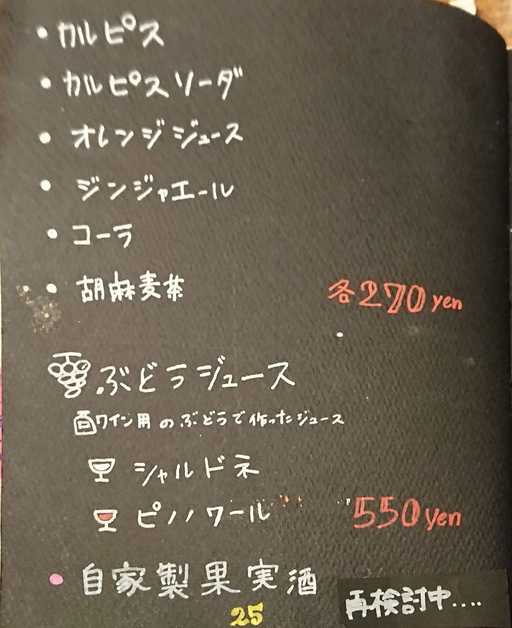 ・カルピス
・カルピスソーダ
・オレンジジュース
・ジンジャエール
・コーラ
・胡麻麦茶 各270yen
ぶどうジュース
ワイン用のぶどうで作ったジュース
シャルドネ
ピノノワール 550yen
・自家製果実酒
再検討中....
25